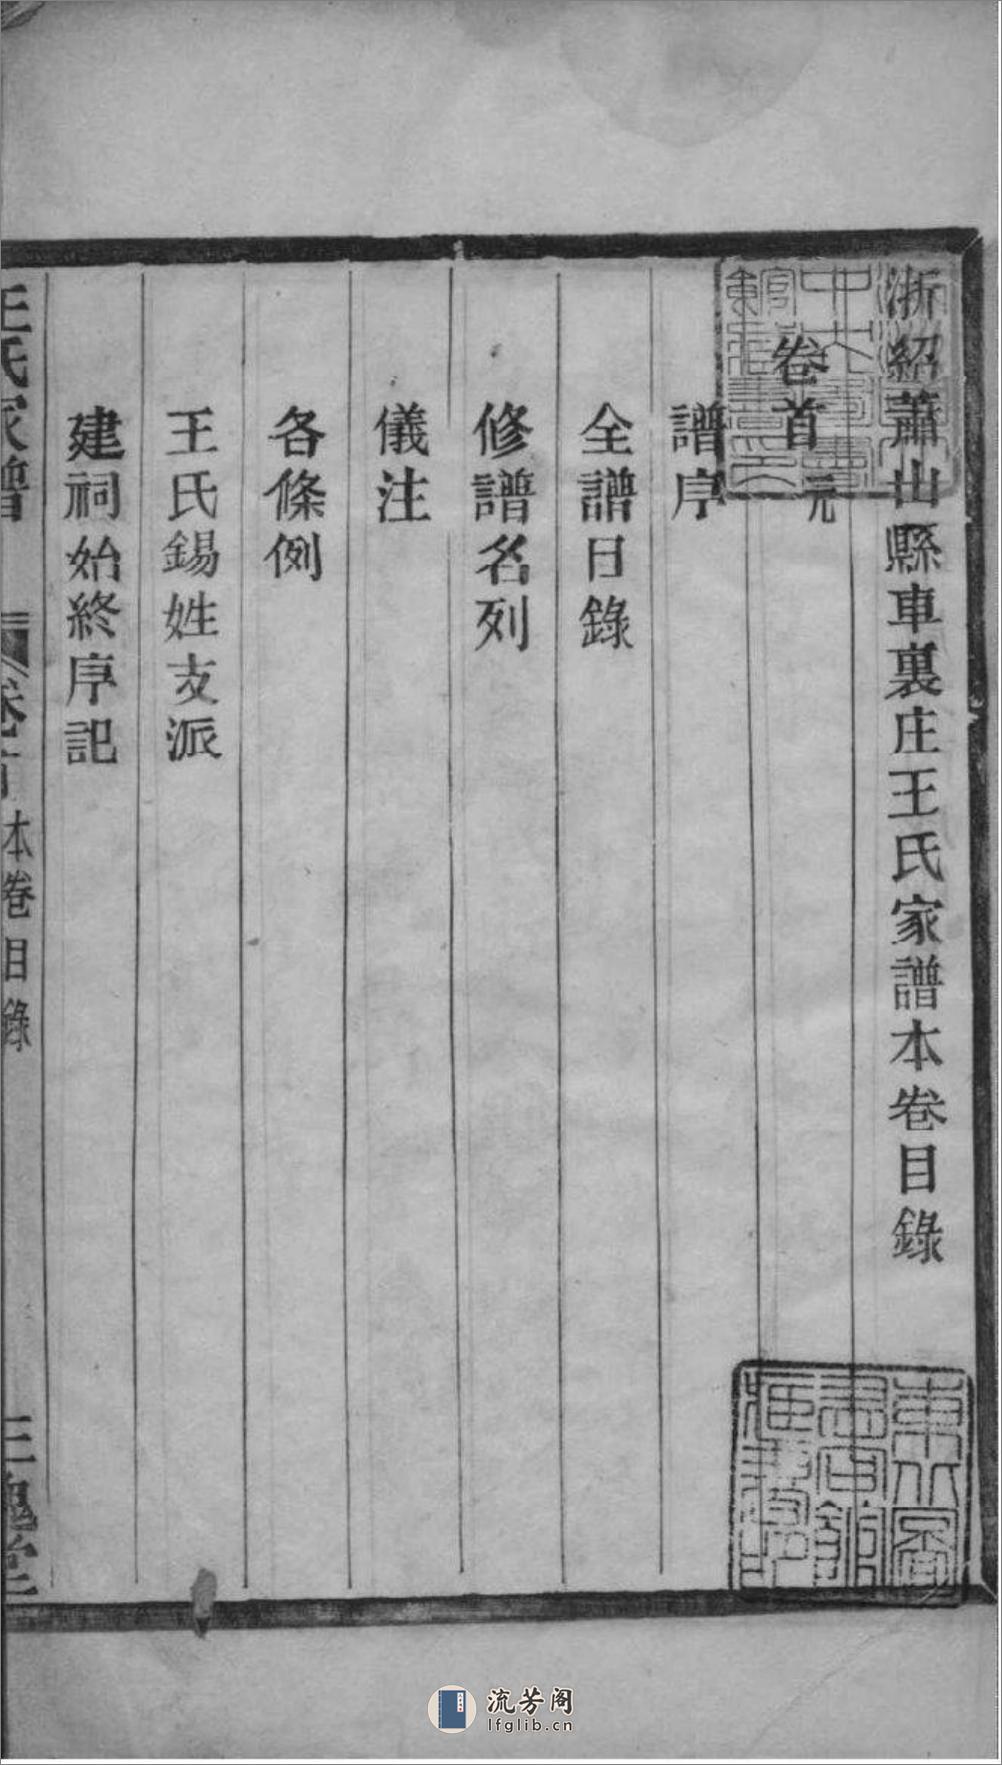 浙紹蕭山縣車裏庄王氏家譜本卷目錄
卷首 元
譜序
全譜目錄
修譜名列
儀注
各條例
王氏錫姓支派
建祠始終序記
王氏家譜 卷首 本卷目錄 三槐堂
流芳阁
lfglib.cn